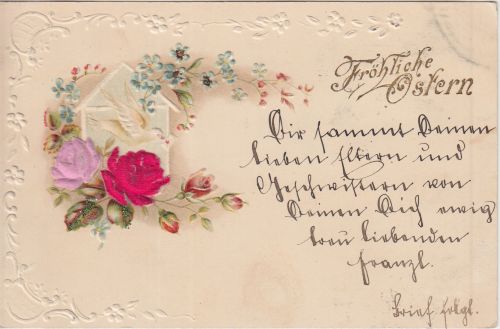 Fröhliche
Ostern
Dir sammt Deinen
lieben Eltern und
Geschwistern von
Deinen Dich ewig
treu liebenden
Franzl.
Brief folgt.